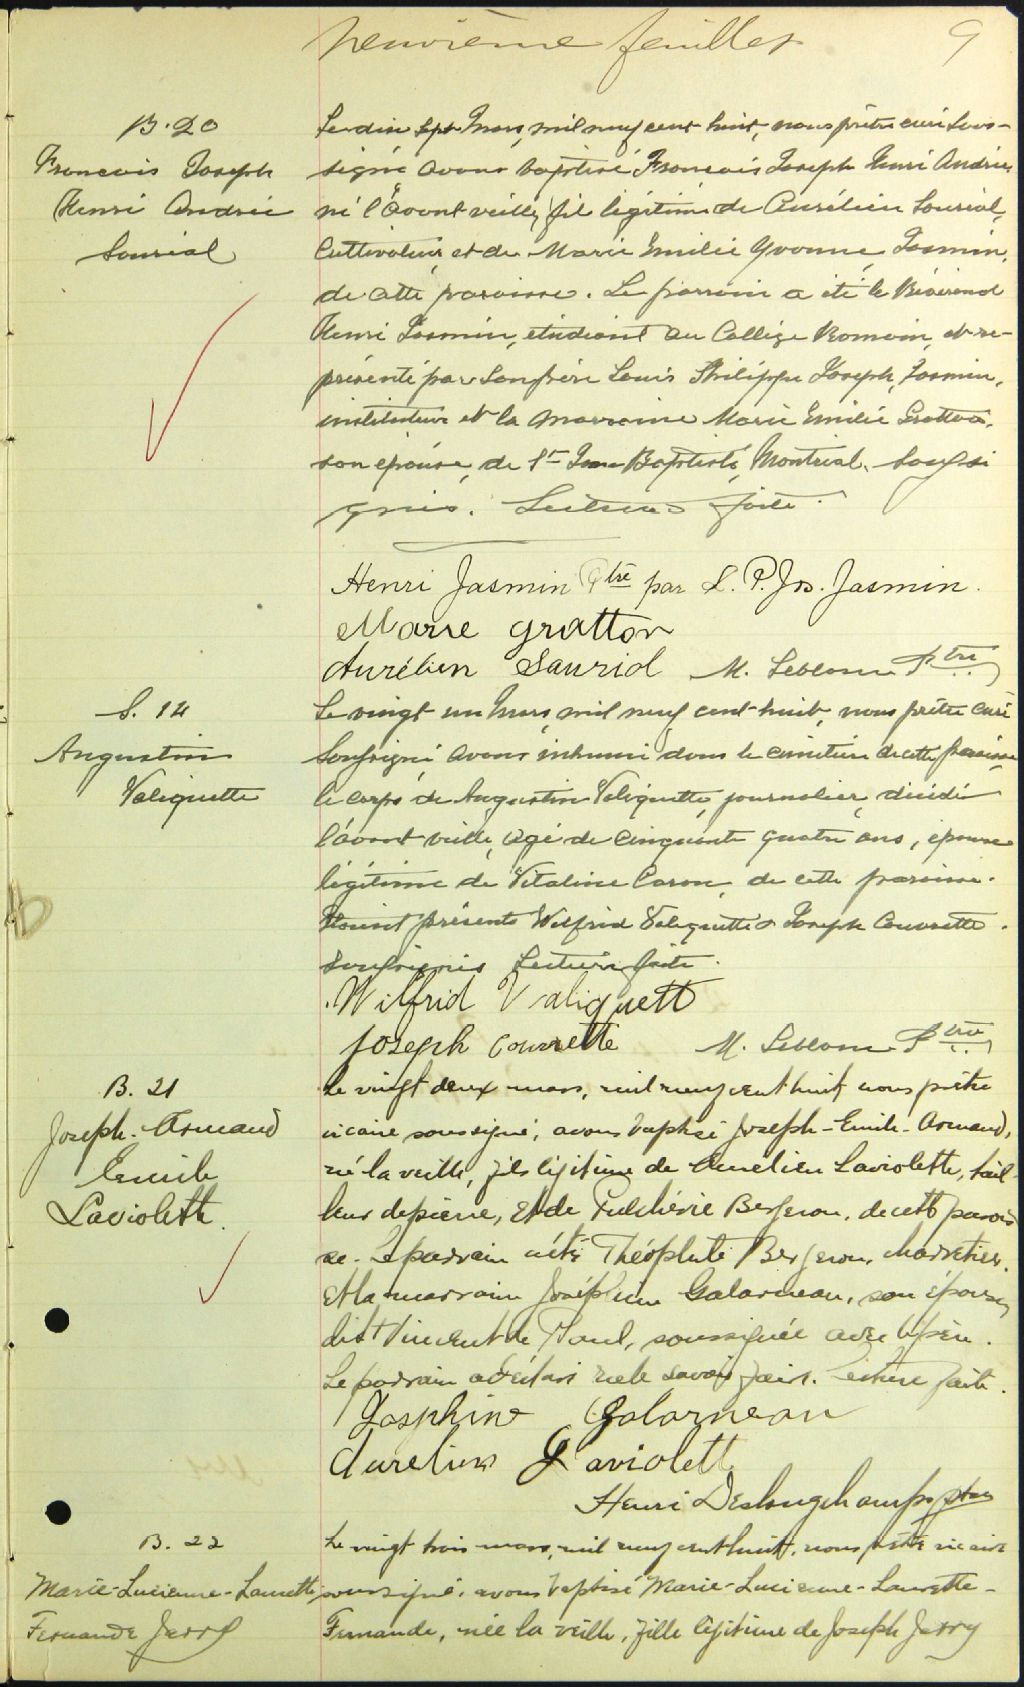 neuvième feuillet 9
B. 20
François Joseph
Henri André
Sauriol
Le dix sept Mars, mil neuf cent huit, nous prêtre curé sous-
signé avons baptisé François Joseph Henri André
né l'avant veille, fils légitime de Aurélien Sauriol,
Cultivateur, et de Marie Emilie Yvonne Jasmin,
de cette paroisse. Le parrain a été le Révérend
Henri Jasmin, étudiant au Collège Romain, et re-
présenté par Son frère Louis Philippe Joseph Jasmin,
instituteur et la marraine Marie Emilie Gratton,
son épouse, de St Jean Baptiste, Montréal, soussi
gnés. Lecture faite.
Henri Jasmin Ptre par L. P. Jos. Jasmin.
Marie Gratton
Aurélien Sauriol M. Leblanc Ptre
S. 14
Augustin
Valiquette
Le vingt un Mars, mil neuf cent huit, nous prêtre curé
Soussigné avons inhumé dans le cimetière de cette paroisse
le corps de Augustin Valiquette, journalier, décédé
l'avant veille, agé de cinquante quatre ans, époux
légitime de Vitaline Caron, de cette paroisse.
Etaient présents Wilfrid Valiquette & Joseph Couvrette.
soussignés Lecture faite.
Wilfrid Valiquett
Joseph Couvrette M. Leblanc Ptre
B. 21
Joseph-Armand
Emile
Laviolette.
Le vingt deux mars, mil neuf cent huit, nous prêtre
vicaire soussigné, avons baptisé Joseph-Emile-Armand,
né la veille, fils légitime de Aurélien Laviolette, tail-
leur de pierre, et de Pulchérie Bergeron, de cette parois
se. Le parrain a été Théophile Bergeron, charretier,
et la marraine Joséphine Galarneau, son épouse,
de St Vincent de Paul, soussignée avec le père.
Le parrain a déclaré ne le savoir faire. Lecture faite.
Josphine Galarneau
Aurelien Laviolett
Henri Deslongchamps ptre
B. 22
Marie-Lucienne-Laurette
Fernande Jarry
Le vingt trois mars, mil neuf cent huit, nous prêtre vicaire
soussigné, avons baptisé Marie-Lucienne-Laurette-
Fernande, née la veille, fille légitime de Joseph Jarry